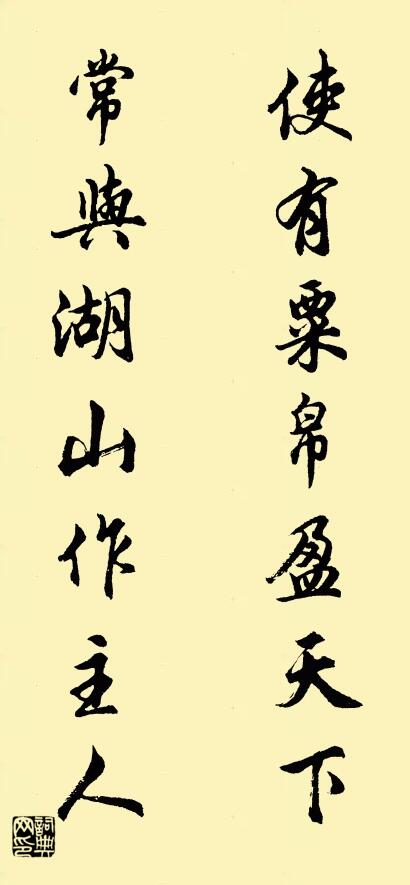 使有粟帛盈天下
常與湖山作主人
詞典網印